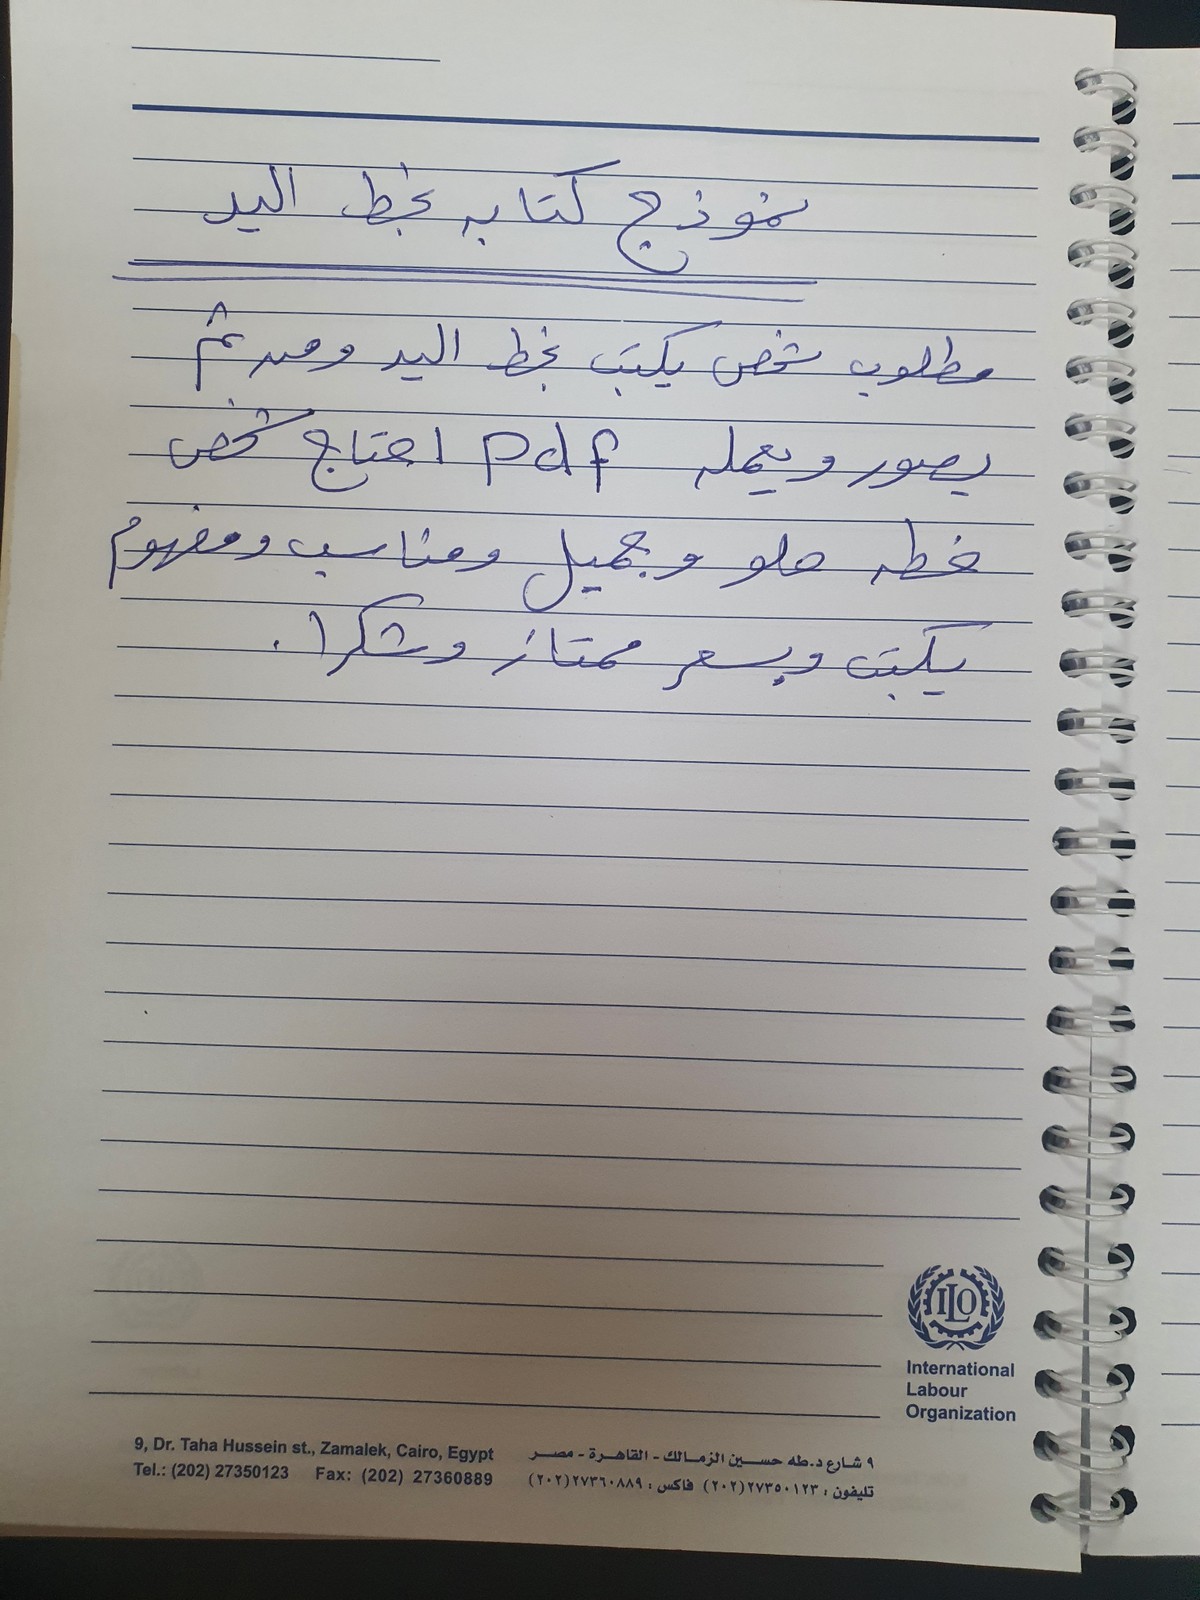 نموذج كتابه بخط اليد
مطلوب شخص يكتب بخط اليد ومن ثم
يصور ويعمله pdf احتاج شخص
خطه حلو وجميل ومناسب ومفهوم
يكتب وبسعر ممتاز وشكرا.
ILO
International
Labour
Organization
9, Dr. Taha Hussein st., Zamalek, Cairo, Egypt
Tel.: (202) 27350123 Fax: (202) 27360889
٩ شارع د.طه حسين الزمالك - القاهرة - مصر
تليفون : ٢٧٣٥٠١٢٣(٢٠٢) فاكس : ٢٧٣٦٠٨٨٩(٢٠٢)